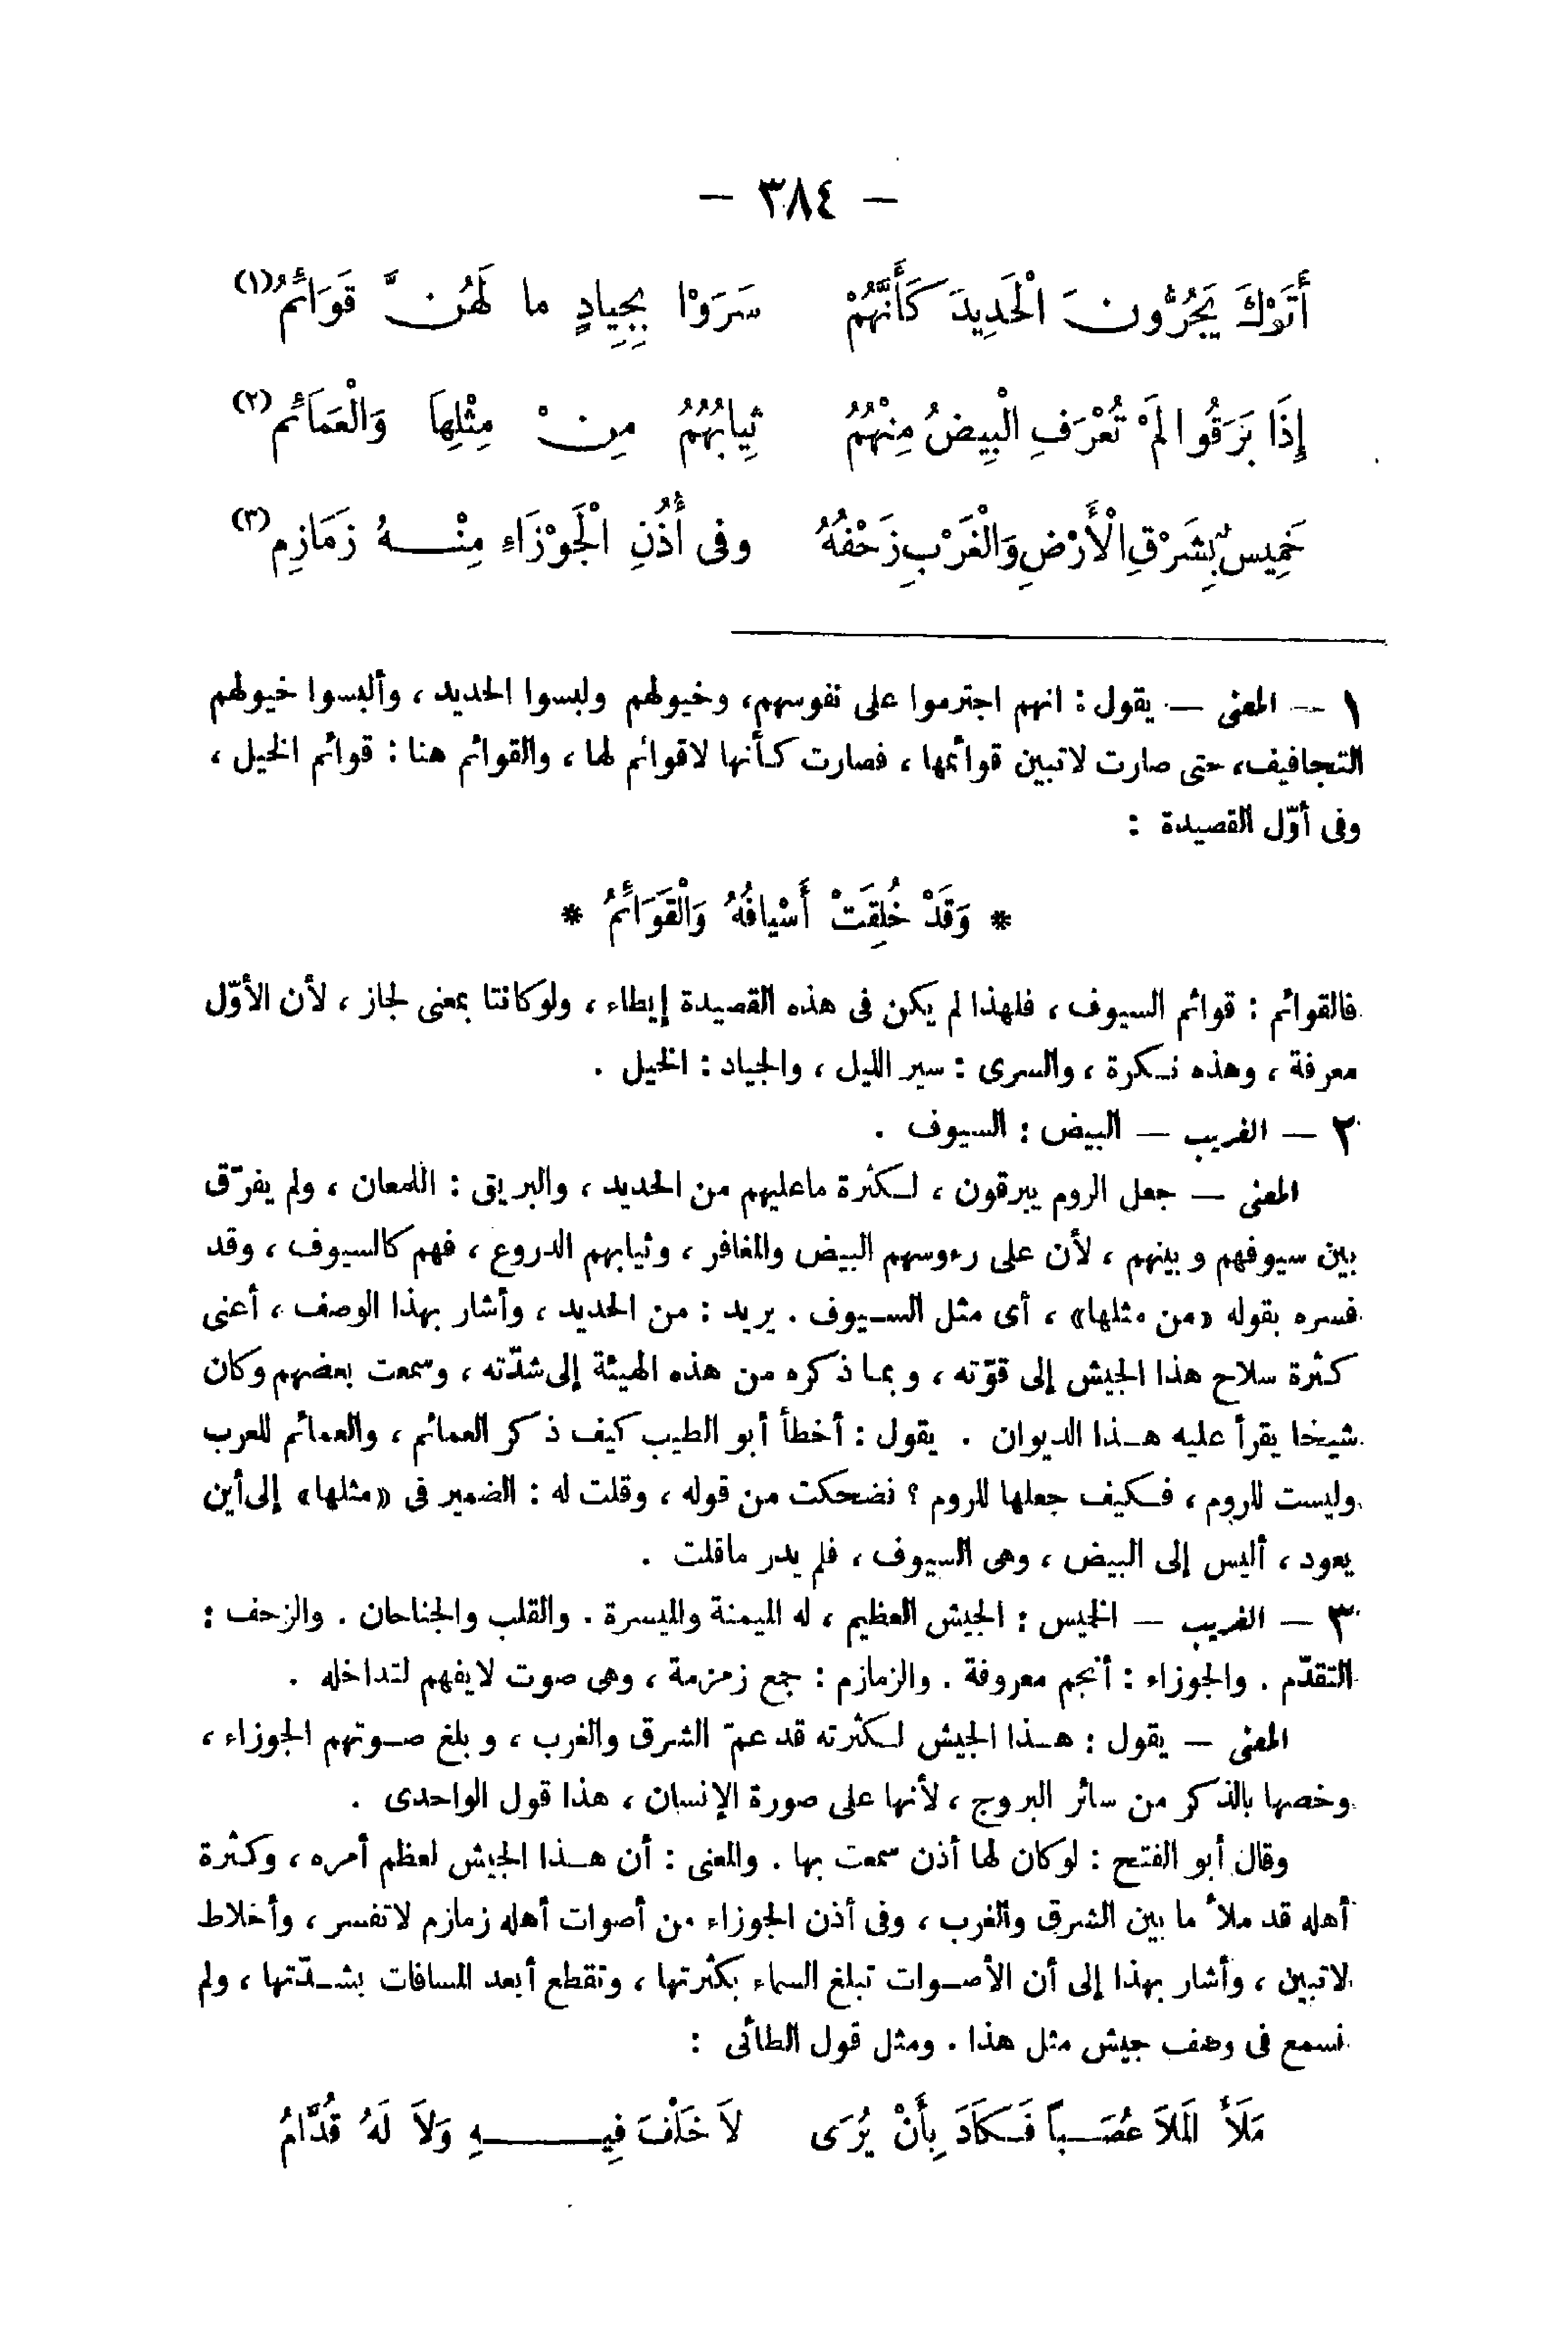 — ٣٨٤ —
أَتَوْكَ يَجُرُّونَ الْحَدِيدَ كَأَنَّهُمْ سَرَوْا بِجِيادٍ ما لَهُنَّ قَوَائُمُ (١)
إِذَا بَرَقُوا لَمْ تُعْرَفِ الْبِيضُ مِنْهُمُ ثِيابُهُمُ مِنْ مِثْلِهاَ وَالْعَمَائُم (٢)
خَمِيسٌ بِشَرْقِ الْأَرْضِ وَالْغَرْبِ زَحْفُهُ وفى أُذُنِ الْجَوْزَاءِ مِنْهُ زَمَازِم (٣)
١ — المعنى — يقول : انهم اجترموا على نفوسهم، وخيولهم ولبسوا الحديد ، وألبسوا خيولهم
التجافيف، حتى صارت لاتبين قوائمها ، فصارت كأنها لاقوائم لها ، والقوائم هنا : قوائم الخيل ،
وفى أوّل القصيدة :
* وَقَدْ خُلِقَتْ أَسْيافُهُ وَالْقَوَائُمُ *
فالقوائم : قوائم السيوف ، فلهذا لم يكن فى هذه القصيدة إيطاء ، ولوكانتا بمعنى لجاز ، لأن الأوّل
معرفة ، وهذه نكرة ، والسرى : سير الليل ، والجياد : الخيل .
٢ — الغريب — البيض : السيوف .
المعنى — جعل الروم يبرقون ، لكثرة ماعليهم من الحديد ، والبريق : اللمعان ، ولم يفرّق
بين سيوفهم وبينهم ، لأن على رءوسهم البيض والمغافر ، وثيابهم الدروع ، فهم كالسيوف ، وقد
فسره بقوله «من مثلها» ، أى مثل السيوف . يريد : من الحديد ، وأشار بهذا الوصف ، أعنى
كثرة سلاح هذا الجيش إلى قوّته ، وبما ذكره من هذه الهيئة إلى شدّته ، وسمعت بعضهم وكان
شيخا يقرأ عليه هذا الديوان . يقول : أخطأ أبو الطيب كيف ذكر العمائم ، والعمائم للعرب
وليست للروم ، فكيف جعلها للروم ؟ نضحكت من قوله ، وقلت له : الضمير فى «مثلها» إلى أين
يعود ، أليس إلى البيض ، وهى السيوف ، فلم يدر ماقلت .
٣ — الغريب — الخميس : الجيش العظيم ، له الميمنة والميسرة . والقلب والجناحان . والزحف :
التقدّم . والجوزاء : أنجم معروفة . والزمازم : جمع زمزمة ، وهى صوت لايفهم لتداخله .
المعنى — يقول : هذا الجيش لكثرته قد عمّ الشرق والغرب ، وبلغ صوتهم الجوزاء ،
وخصها بالذكر من سائر البروج ، لأنها على صورة الإنسان ، هذا قول الواحدى .
وقال أبو الفتح : لوكان لها أذن سمعت بها . والمعنى : أن هذا الجيش لعظم أمره ، وكثرة
أهله قد ملأ ما بين الشرق والغرب ، وفى أذن الجوزاء من أصوات أهله زمازم لاتفسر ، وأخلاط
لاتبين ، وأشار بهذا إلى أن الأصوات تبلغ السماء بكثرتها ، وتقطع أبعد المسافات بشدّتها ، ولم
نسمع فى وصف جيش مثل هذا . ومثل قول الطائى :
مَلَأَ الَملَا عُصَباً فَكَادَ بِأَنْ يُرَى لاَ خَلْفَ فِيهِ وَلاَ لَهُ قُدَّامُ